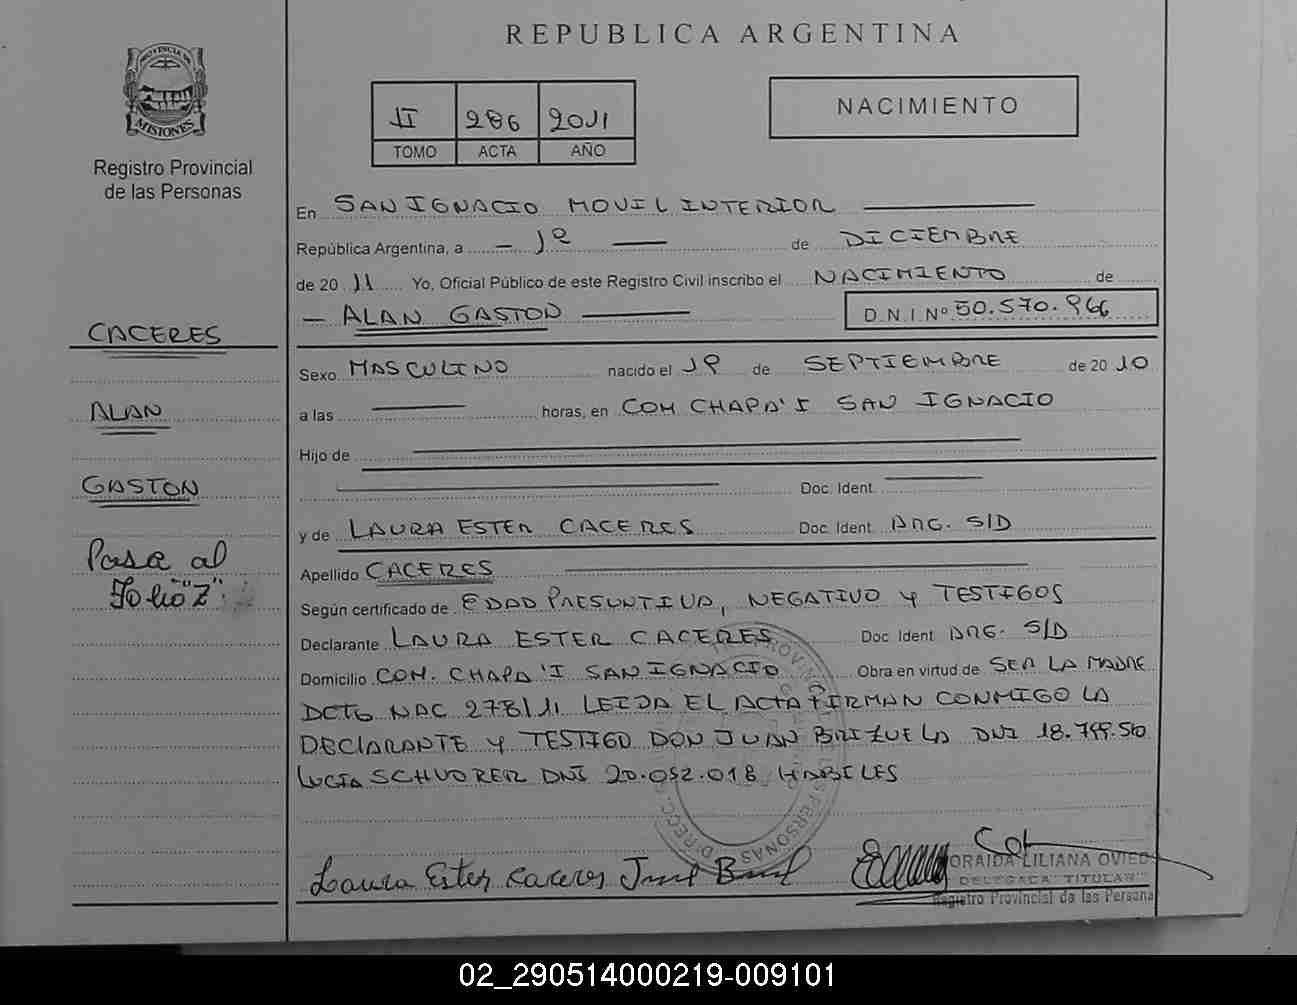 REPUBLICA ARGENTINA
PROVINCIA DE
MISIONES
Registro Provincial
de las Personas
II 286 2011
TOMO ACTA AÑO
NACIMIENTO
En SAN IGNACIO MOVIL INTERIOR
República Argentina, a 1º de DICIEMBRE
de 2011 Yo, Oficial Público de este Registro Civil inscribo el NACIMIENTO de
ALAN GASTON D.N.I. Nº 50.570.966
CACERES
ALAN
GASTON
Pasa al
Folio "Z"
Sexo MASCULINO nacido el 1º de SEPTIEMBRE de 2010
a las horas, en COM CHAPA'I SAN IGNACIO
Hijo de
Doc. Ident.
y de LAURA ESTER CACERES Doc. Ident. ARG. S/D
Apellido CACERES
Según certificado de EDAD PRESUNTIVA, NEGATIVO Y TESTIGOS
Declarante LAURA ESTER CACERES Doc. Ident. ARG. S/D
Domicilio COM. CHAPA'I SAN IGNACIO Obra en virtud de SER LA MADRE
DCTO NAC 278/11 LEIDA EL ACTA FIRMAN CONMIGO LA
DECLARANTE Y TESTIGO DON JUAN BRIZUELA DNI
LUCIA SCHVORER DNI 20.052.018 HABILES
Laura Ester Caceres
ORAIDA LILIANA OVIEDO
DELEGADA TITULAR
Registro Provincial de las Persona
02_290514000219-009101